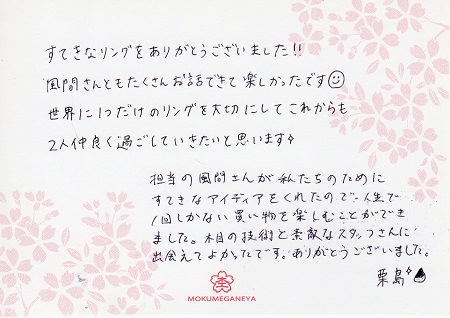 すてきなリングをありがとうございました!!
風間さんともたくさんお話できて楽しかったです☺
世界に1つだけのリングを大切にしてこれからも
2人仲良く過ごしていきたいと思います
担当の風間さんが私たちのために
すてきなアイディアをくれたので、人生で
1回しかない買い物を楽しむことができ
ました。木目の技術と素敵なスタッフさんに
出会えてよかったです。ありがとうございました。
栗島
MOKUMEGANEYA